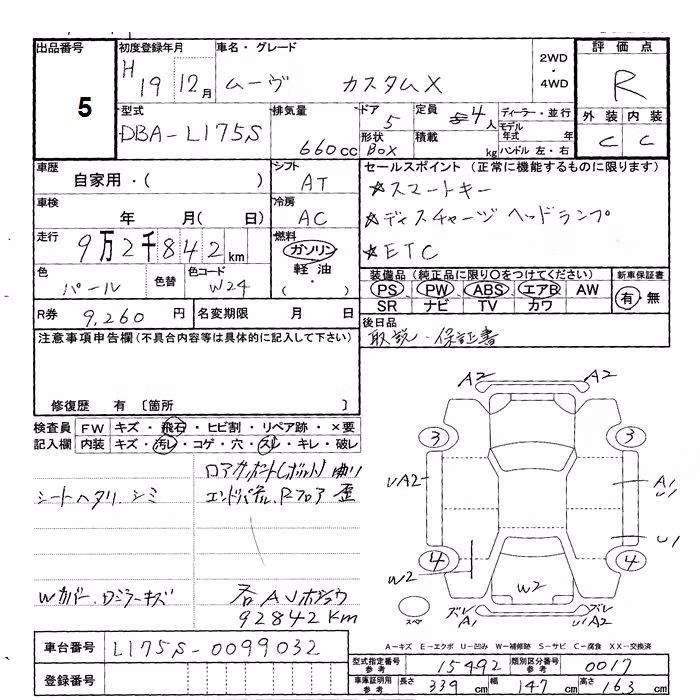 出品番号
5
初度登録年月
H19 12月
車名・グレード
ムーヴ カスタムX
2WD
・
4WD
評価点
R
外装 内装
C C
型式
DBA-L175S
排気量
660cc
ドア
5
形状
BOX
定員
4人
積載
kg
ディーラー・並行
モデル
年式 年
ハンドル 左・右
車歴
自家用・( )
シフト
AT
車検
年 月( 日)
冷房
AC
走行
9万2千842km
燃料
ガソリン
軽油
・
( )
色
パール
色替
色コード
W24
R券 9,260円
名変期限 月 日
セールスポイント (正常に機能するものに限ります)
☆スマートキー
☆ディスチャージヘッドランプ
☆ETC
装備品 (純正品に限り○をつけてください)
PS PW ABS エアB AW
SR ナビ TV カワ
新車保証書
有・無
後日品
取説・保証書
注意事項申告欄(不具合内容等は具体的に記入して下さい)
修復歴 有 〔箇所 〕
検査員 FW キズ・飛石・ヒビ割・リペア跡・×要
記入欄 内装 キズ・汚レ・コゲ・穴・スレ・キレ・破レ
シートヘタリ、シミ
ロアサポート(ボルト)曲り
エンドパネル、Rフロア 歪
Wカバー、ロミラーキズ
92842Km
A2 A2
3 3
A2
A1
U1
U1
4 4
W2
W2
スペ
ズレ
A1
ズレ
U1 A2
A-キズ E-エクボ U-凹み W-補修跡 S-サビ C-腐食 XX-交換済
車台番号 L175S-0099032
登録番号
型式指定番号
参考
15492
類別区分番号
参考
0017
車庫証明用
参考
長さ 339 cm 幅 147 cm 高さ 163 cm